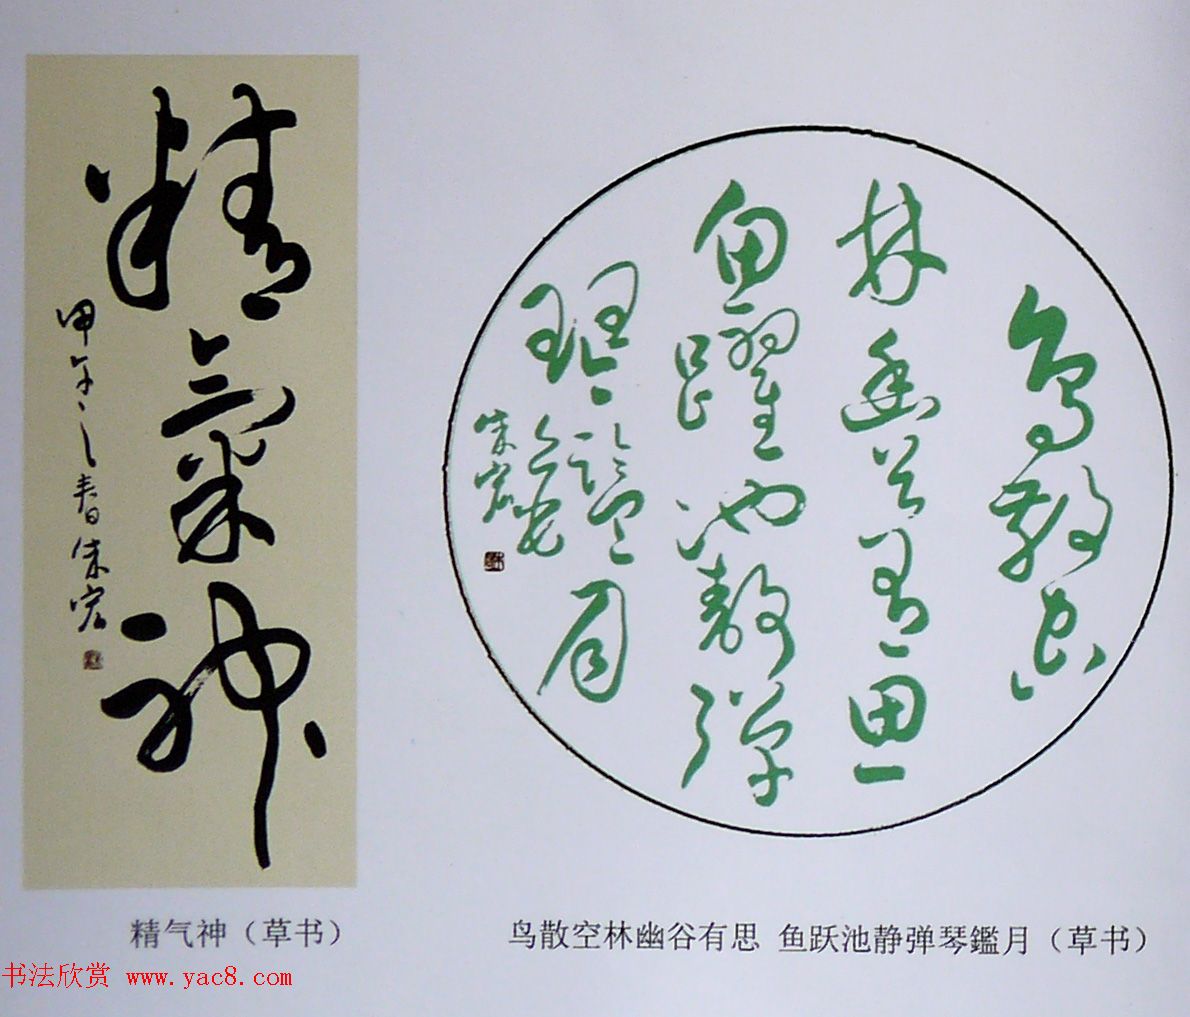 精氣神
甲午之春朱宏
鳥散空
林幽谷有思
魚躍池静彈
琴鑑月
朱宏
精气神（草书）
鸟散空林幽谷有思 鱼跃池静弹琴鑑月（草书）
书法欣赏 www.yac8.com